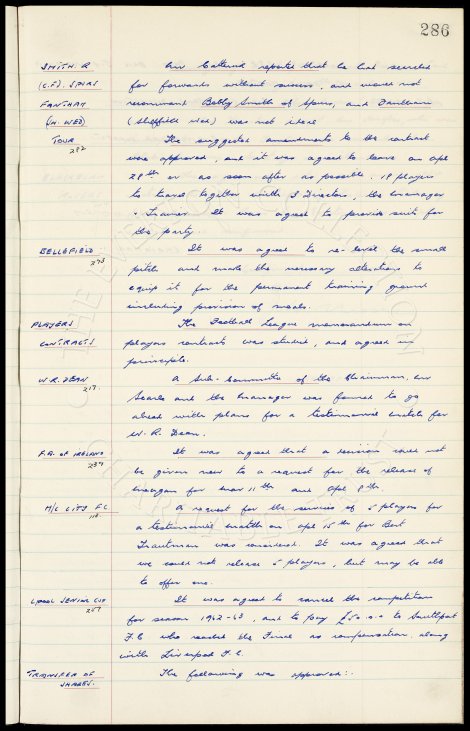 286
SMITH. R
Mr Catterick reported that he had searched
(C.F). SPURS
for forwards without success, and would not
FANTHAM
recommend Bobby Smith of Spurs, and Fantham
(SH. WED)
(Sheffield Wed) was not ideal
TOUR
The suggested amendments to the contract
282
were approved, and it was agreed to leave on Apl
28th or as soon after as possible. 18 players
to travel together with 3 Directors, the manager
+ Trainer. It was agreed to provide suits for
the party.
BELLEFIELD
It was agreed to re-level the small
273
pitch and make the necessary alterations to
equip it for the permanent training ground
including provision of meals.
PLAYERS
The Football League memorandum on
CONTRACTS
players contracts was studied, and agreed in
principle.
W. R. DEAN
A Sub-Committe of the Chairman, Mr
217.
Searle and the manager was formed to go
ahead with plans for a testamonial match for
W. R. Dean.
F.A. OF IRELAND
It was agreed that a decision could not
237
be given now to a request for the release of
for Mar 11th and Apl 8th.
M/C CITY F.C.
A request for the services of 5 players for
a testimonial match on Apl 15th for Bert
Trautman was considered. It was agreed that
we could not release 5 players, but may be able
to offer one.
L'POOL SENIOR CUP
It was agreed to cancel the competition
257
for season 1962-63, and to pay £50.0.0 to Southport
F.C. who reached the Final as compensation along
with Liverpool F.C.
TRANSFER OF
The following was approved:-
SHARES.
THE EVERTON COLLECTION
CHARITABLE TRUST